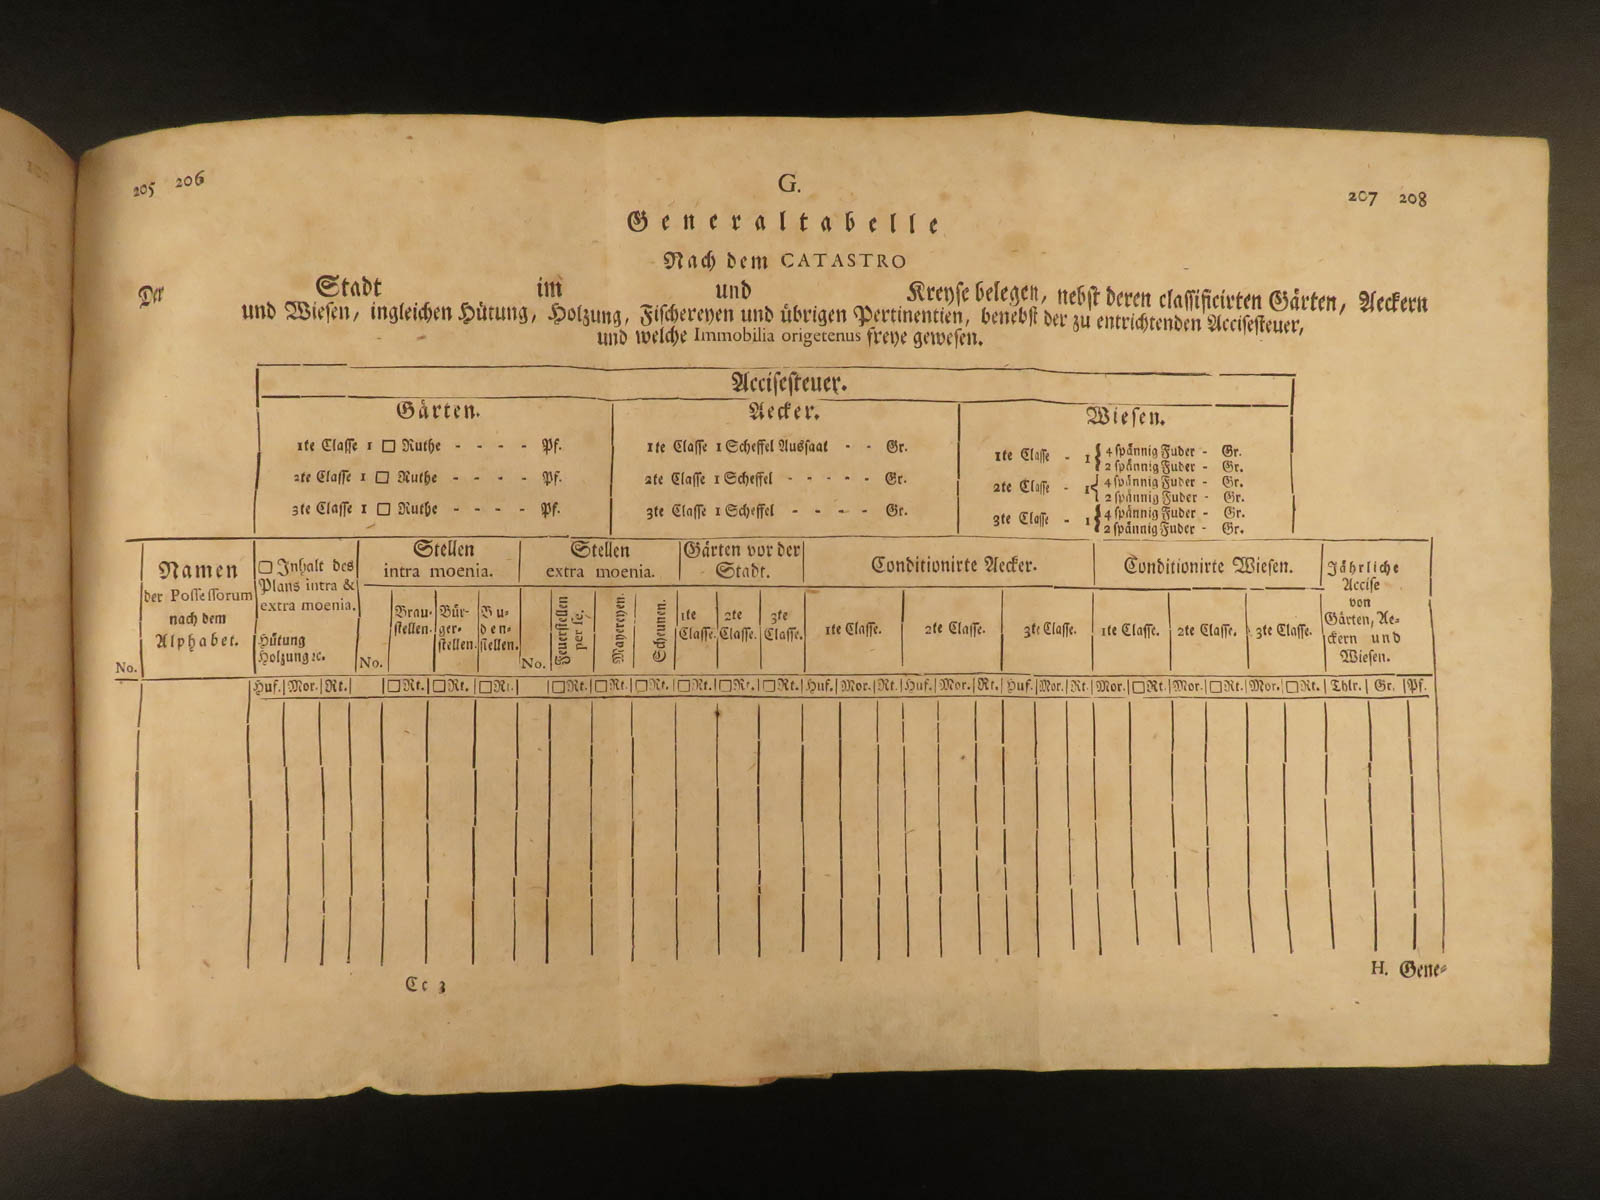 205 206
207 208
G.
Generaltabelle
Nach dem CATASTRO
Der Stadt im und Kreyse belegen, nebst deren classificirten Gärten, Aeckern
und Wiesen, ingleichen Hütung, Holzung, Fischereyen und übrigen Pertinentien, benebst der zu entrichtenden Accisesteuer,
und welche Immobilia origetenus freye gewesen.
Accisesteuer.
Gärten.
1te Classe 1 □ Ruthe - - - - Pf.
2te Classe 1 □ Ruthe - - - - Pf.
3te Classe 1 □ Ruthe - - - - Pf.
Aecker.
1te Classe 1 Scheffel Aussaat - - Gr.
2te Classe 1 Scheffel - - - - - Gr.
3te Classe 1 Scheffel - - - - - Gr.
Wiesen.
1te Classe - 1 { 4 spännig Fuder - Gr.
2 spännig Fuder - Gr.
2te Classe - 1 { 4 spännig Fuder - Gr.
2 spännig Fuder - Gr.
3te Classe - 1 { 4 spännig Fuder - Gr.
2 spännig Fuder - Gr.
No.
Namen
der Possessorum
nach dem
Alphabet.
□ Inhalt des
Plans intra &
extra moenia.
Hütung
Holzung ꝛc.
Stellen
intra moenia.
No.
Brau-
stellen.
Bür-
ger-
stellen.
Bu-
den-
stellen.
Stellen
extra moenia.
No.
Feuerstellen
per se.
Mayereyen.
Scheunen.
Gärten vor der
Stadt.
1te
Classe.
2te
Classe.
3te
Classe.
Conditionirte Aecker.
1te Classe. 2te Classe. 3te Classe.
Conditionirte Wiesen.
1te Classe. 2te Classe. 3te Classe.
Jährliche
Accise
von
Gärten, Ae-
ckern und
Wiesen.
Huf. Mor. Rt. □Rt. □Rt. □Rt. □Rt. □Rt. □Rt. □Rt. □Rt. □Rt. Huf. Mor. Rt. Huf. Mor. Rt. Huf. Mor. Rt. Mor. □Rt. Mor. □Rt. Mor. □Rt. Thlr. Gr. Pf.
Cc 3
H. Gene-